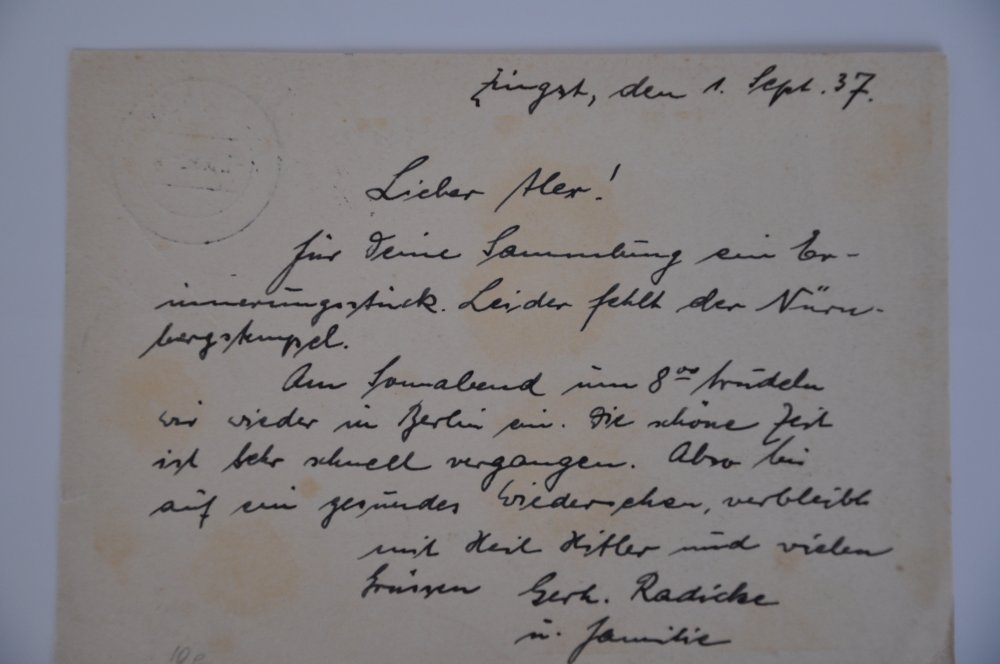 Zingst, den 1. Sept. 37.
Lieber Alex!
Für Deine Sammlung ein Er-
innerungsstück. Leider fehlt der Nürn-
bergstempel.
Am Sonnabend um 8⁰⁰ trudeln
wir wieder in Berlin ein. Die schöne Zeit
ist sehr schnell vergangen. Also bis
auf ein gesundes Wiedersehen, verbleibt
mit Heil Hitler und vielen
Grüssen Gerh. Radicke
u. Familie